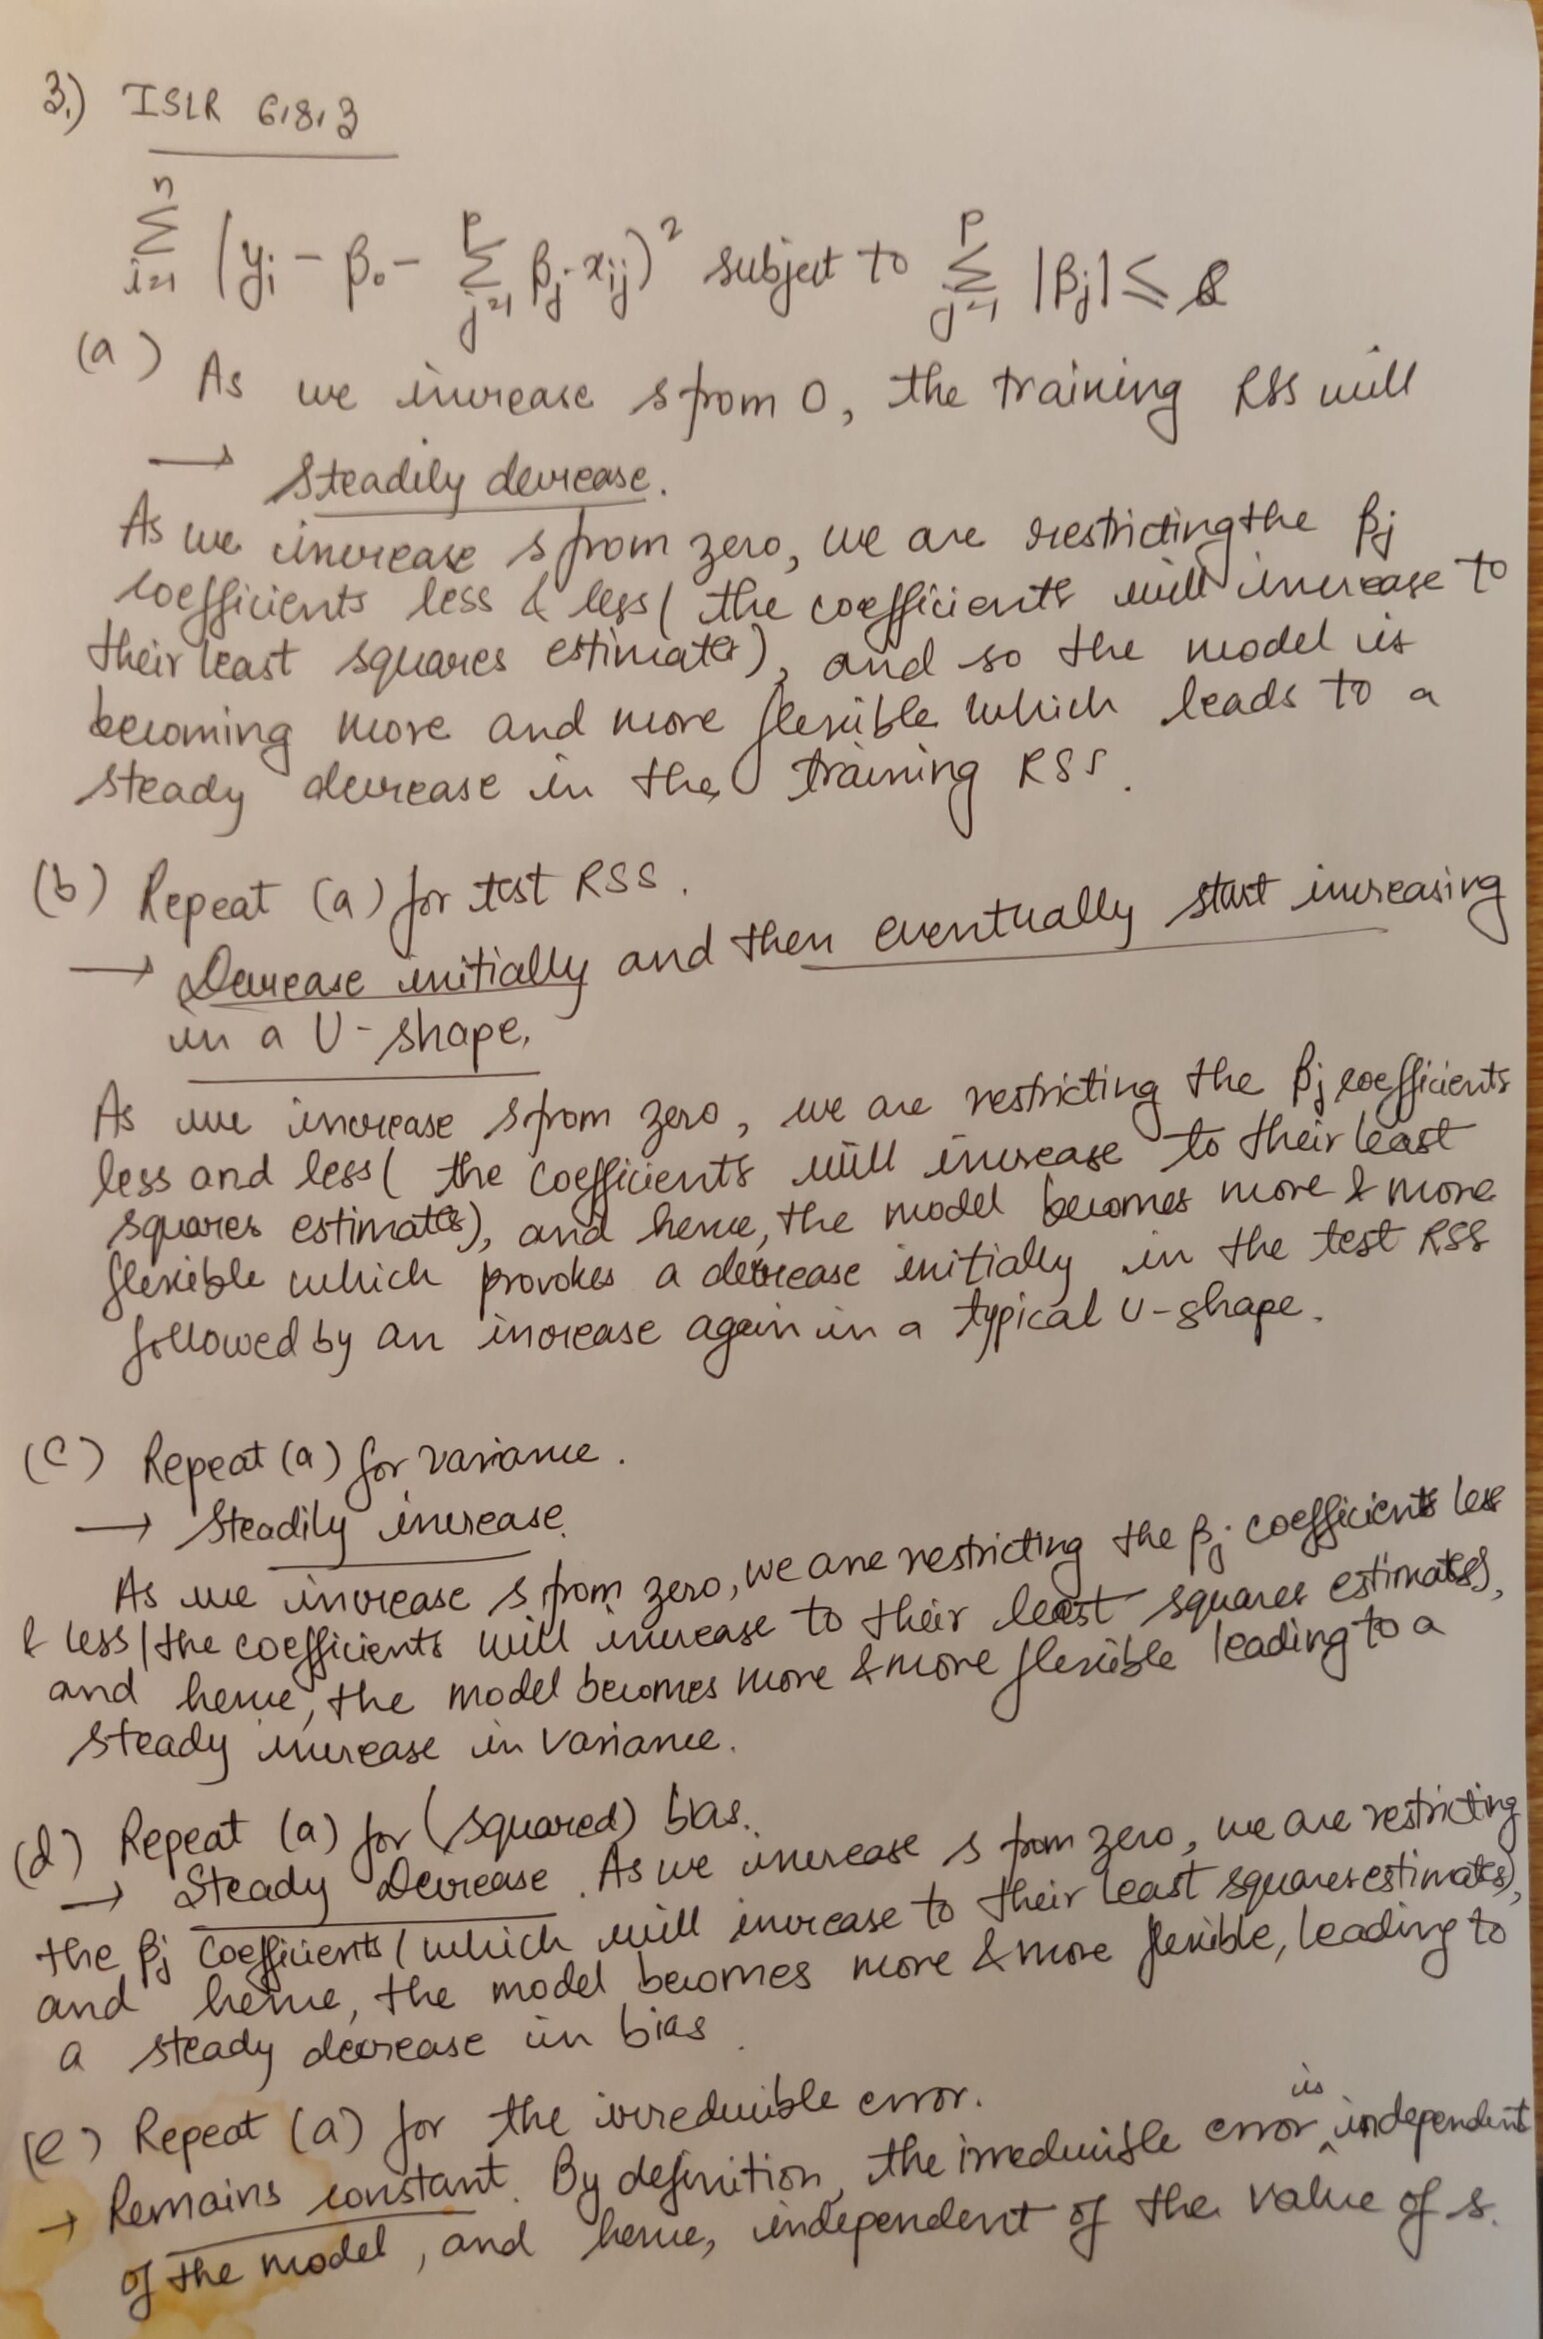 3.) ISLR 6.8.3
n ∑ i=1 (yi - β0 - p ∑ j=1 βj xij)² subject to p ∑ j=1 |βj| ≤ s
(a) As we increase s from 0, the training RSS will
→ Steadily decrease.
As we increase s from zero, we are restricting the βj
coefficients less & less ( the coefficients will increase to
their least squares estimates), and so the model is
becoming more and more flexible which leads to a
steady decrease in the training RSS.
(b) Repeat (a) for test RSS.
→ Decrease initially and then eventually start increasing
in a U-shape.
As we increase s from zero, we are restricting the βj coefficients
less and less ( the coefficients will increase to their least
squares estimates), and hence, the model becomes more & more
flexible which provokes a decrease initially in the test RSS
followed by an increase again in a typical U-shape.
(c) Repeat (a) for variance.
→ Steadily increase.
As we increase s from zero, we are restricting the βj coefficients less
& less ( the coefficients will increase to their least squares estimates),
and hence, the model becomes more & more flexible leading to a
steady increase in variance.
(d) Repeat (a) for (squared) bias.
→ Steady Decrease. As we increase s from zero, we are restricting
the βj coefficients ( which will increase to their least squares estimates),
and hence, the model becomes more & more flexible, leading to
a steady decrease in bias.
(e) Repeat (a) for the irreducible error.
→ Remains constant. By definition, the irreducible error is independent
of the model, and hence, independent of the value of s.